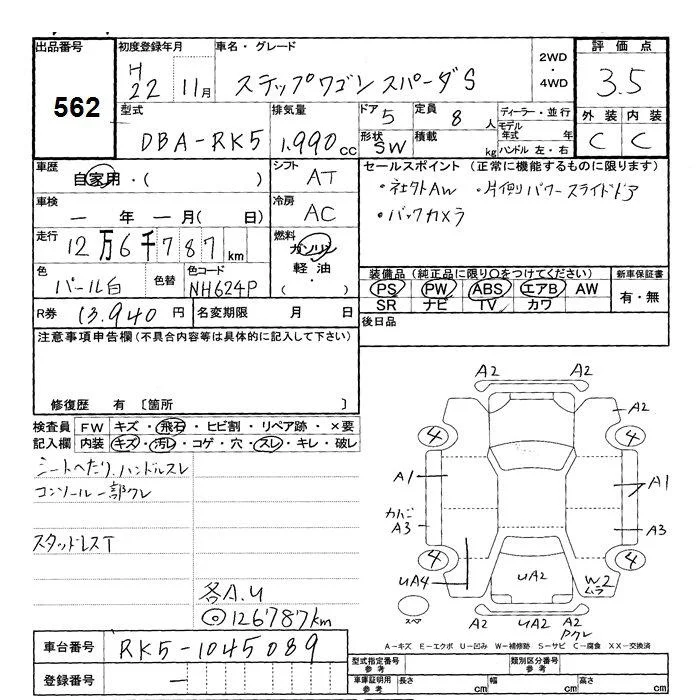 出品番号 初度登録年月 車名・グレード 2WD・4WD 評価点
562 H22 11月 ステップワゴン スパーダS 3.5
型式 排気量 ドア 5 定員 8 人 ディーラー・並行 外装 内装
DBA-RK5 1,990 cc 形状 SW 積載 kg モデル年式 年 C C
ハンドル 左・右
車歴 自家用・( ) シフト AT セールスポイント(正常に機能するものに限ります)
車検 ー年 ー月( ) 冷房 AC ・社外AW ・片側パワースライドドア
・バックカメラ
走行 12万6千787km 燃料 ガソリン 軽油・( )
色 パール白 色替 色コード NH624P 装備品(純正品に限り○をつけてください) 新車保証書
PS PW ABS エアB AW 有・無
SR ナビ TV カワ
R券 13,940円 名変期限 月 日 後日品
注意事項申告欄(不具合内容等は具体的に記入して下さい)
修復歴 有 〔箇所 〕
検査員 FW キズ・飛石・ヒビ割・リペア跡・×要
記入欄 内装 キズ・汚レ・コゲ・穴・スレ・キレ・破レ
シートへたり、ハンドルスレ
コンソール一部クレ
スタッドレスT
各A.U
◎126787km
A2 A2
A2
4 4
A1 A1
A3 A3
4 4
UA4 UA2 W2 ムラ
スペア A2 UA2 A2
A-キズ E-エクボ U-凹み W-補修跡 S-サビ C-腐食 XX-交換済
車台番号 RK5-1045089
登録番号 ー
型式指定番号 参考 類別区分番号 参考
車庫証明用 参考 長さ cm 幅 cm 高さ cm